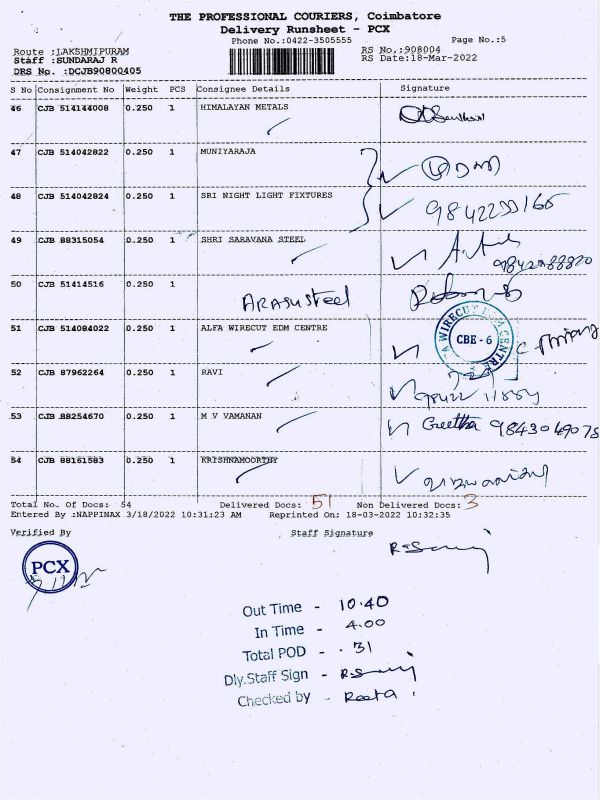 THE PROFESSIONAL COURIERS, Coimbatore
Delivery Runsheet - PCX
Phone No.:0422-3505555 Page No.:5
Route :LAKSHMIPURAM RS No.:908004
Staff :SUNDARAJ R RS Date:18-Mar-2022
DRS No. :DCJB90800405
S No Consignment No Weight PCS Consignee Details Signature
46 CJB 514144008 0.250 1 HIMALAYAN METALS
47 CJB 514042822 0.250 1 MUNIYARAJA
48 CJB 514042824 0.250 1 SRI NIGHT LIGHT FIXTURES
49 CJB 88315054 0.250 1 SHRI SARAVANA STEEL
50 CJB 51414516 0.250 1
Arasu Steel
51 CJB 514084022 0.250 1 ALFA WIRECUT EDM CENTRE
CBE - 6
52 CJB 87962264 0.250 1 RAVI
53 CJB 88254670 0.250 1 M V VAMANAN Geetha 9843049078
54 CJB 88161583 0.250 1 KRISHNAMOORTHY
Total No. Of Docs: 54 Delivered Docs: 51 Non Delivered Docs: 3
Entered By :NAPPINAX 3/18/2022 10:31:23 AM Reprinted On: 18-03-2022 10:32:35
Verified By Staff Signature
PCX
Out Time - 10.40
In Time - 4.00
Total POD - . 31
Dly.Staff Sign -
Checked by - Reeta